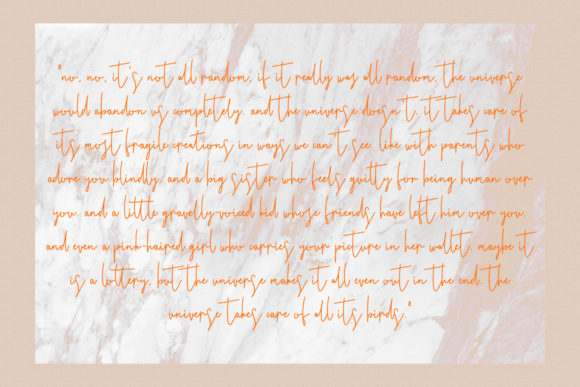 "no, no, it's not all random, if it really was all random, the universe
would abandon us completely. and the universe doesn't. it takes care of
its most fragile creations in ways we can't see. like with parents who
adore you blindly. and a big sister who feels guilty for being human over
you. and a little gravelly-voiced kid whose friends have left him over you.
and even a pink-haired girl who carries your picture in her wallet. maybe it
is a lottery, but the universe makes it all even out in the end. the
universe takes care of all its birds."